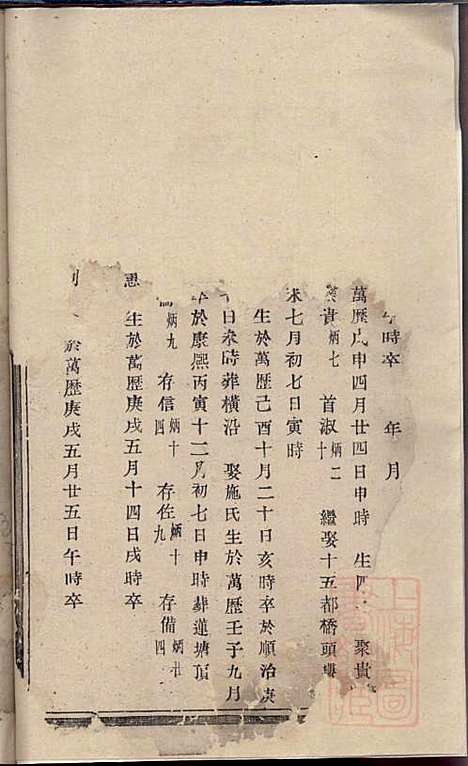 午時卒　年　月
萬歷戊申四月廿四日申時　生四　聚貴
貴炳七　首淑炳二十　繼娶十五都橋頭
未七月初七日寅時
生於萬歷己酉十月二十日亥時卒於順治庚
日未時葬橫沿　娶施氏生於萬歷壬子九月
於康熙丙寅十二月初七日申時葬蓮塘頂
炳九　存信炳十四　存佐炳十九　存備炳廿四
思　生於萬歷庚戌五月十四日戌時卒
於萬歷庚戌五月廿五日午時卒